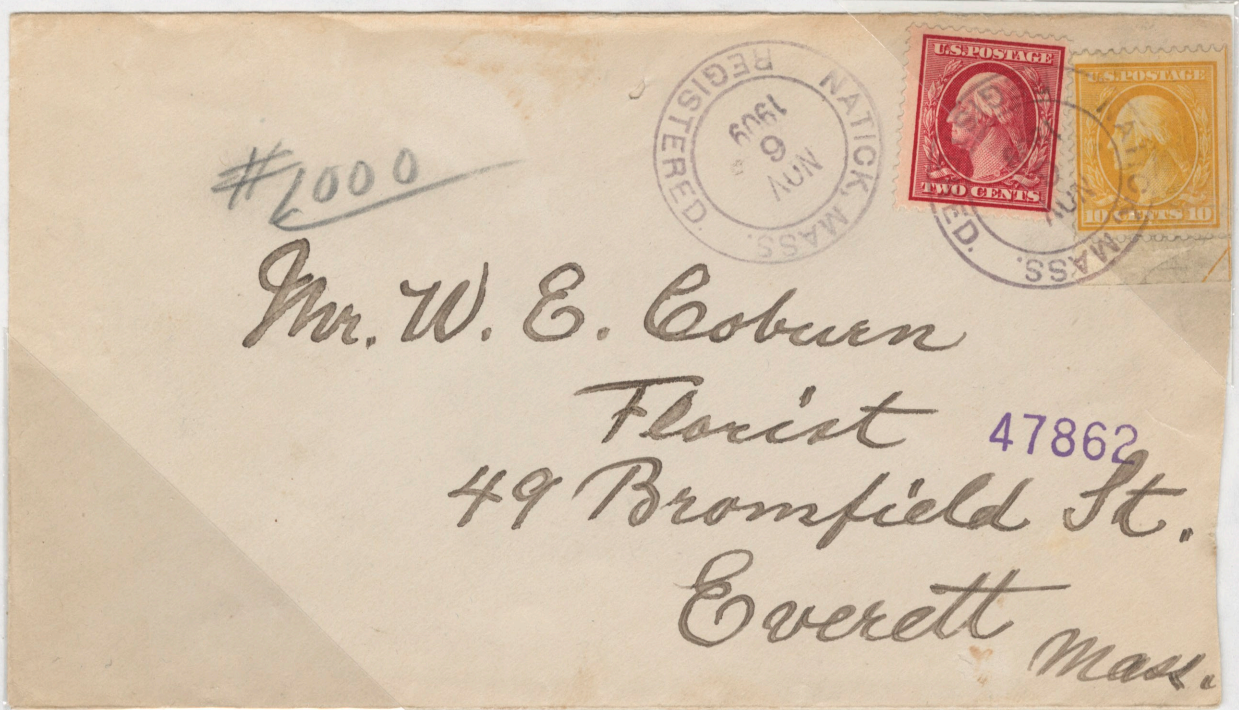 NATICK, MASS.
REGISTERED.
NOV
6
1909
U.S. POSTAGE
TWO CENTS
U.S. POSTAGE
10 CENTS 10
MASS.
NOV
#1000
Mr. W. E. Coburn
Florist
47862
49 Bromfield St.
Everett
Mass.